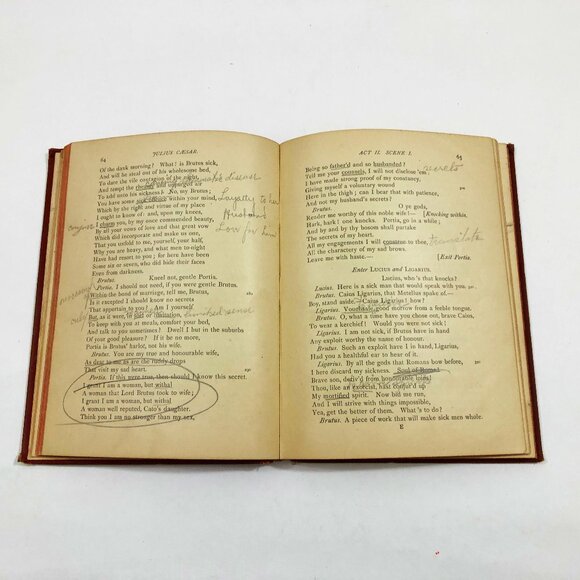 64
JULIUS CÆSAR.
Of the dank morning? What! is Brutus sick,
And will he steal out of his wholesome bed,
To dare the vile contagion of the night
And tempt the rheumy and unpurged air
To add unto his sickness? No, my Brutus;
You have some sick offence within your mind,
Which by the right and virtue of my place
I ought to know of: and, upon my knees,
I charm you, by my once commended beauty,
By all your vows of love and that great vow
Which did incorporate and make us one,
That you unfold to me, yourself, your half,
Why you are heavy, and what men to-night
Have had resort to you; for here have been
Some six or seven, who did hide their faces
Even from darkness.
Brutus. Kneel not, gentle Portia.
Portia. I should not need, if you were gentle Brutus.
Within the bond of marriage, tell me, Brutus,
Is it excepted I should know no secrets
That appertain to you? Am I yourself
But, as it were, in sort or limitation,
To keep with you at meals, comfort your bed,
And talk to you sometimes? Dwell I but in the suburbs
Of your good pleasure? If it be no more,
Portia is Brutus' harlot, not his wife.
Brutus. You are my true and honourable wife,
As dear to me as are the ruddy drops
That visit my sad heart.
Portia. If this were true, then should I know this secret.
I grant I am a woman, but withal
A woman that Lord Brutus took to wife;
I grant I am a woman, but withal
A woman well reputed, Cato's daughter.
Think you I am no stronger than my sex,
disease
Loyalty to her
Husband
Love for him
only
limited sense
ACT II. SCENE I.
65
Being so father'd and so husbanded?
Tell me your counsels, I will not disclose 'em:
I have made strong proof of my constancy,
Giving myself a voluntary wound
Here in the thigh; can I bear that with patience,
And not my husband's secrets?
Brutus. O ye gods,
Render me worthy of this noble wife!— [Knocking within.
Hark, hark! one knocks. Portia, go in a while;
And by and by thy bosom shall partake
The secrets of my heart.
All my engagements I will construe to thee,
All the charactery of my sad brows.
Leave me with haste.— [Exit Portia.
Enter LUCIUS and LIGARIUS.
Lucius, who's that knocks?
Lucius. Here is a sick man that would speak with you.
Brutus. Caius Ligarius, that Metellus spake of.—
Boy, stand aside.—Caius Ligarius! how?
Ligarius. Vouchsafe good morrow from a feeble tongue.
Brutus. O, what a time have you chose out, brave Caius,
To wear a kerchief! Would you were not sick!
Ligarius. I am not sick, if Brutus have in hand
Any exploit worthy the name of honour.
Brutus. Such an exploit have I in hand, Ligarius,
Had you a healthful ear to hear of it.
Ligarius. By all the gods that Romans bow before,
I here discard my sickness. Soul of Rome!
Brave son, deriv'd from honourable loins!
Thou, like an exorcist, hast conjur'd up
My mortified spirit. Now bid me run,
And I will strive with things impossible,
Yea, get the better of them. What's to do?
Brutus. A piece of work that will make sick men whole.
E
secrets
translate